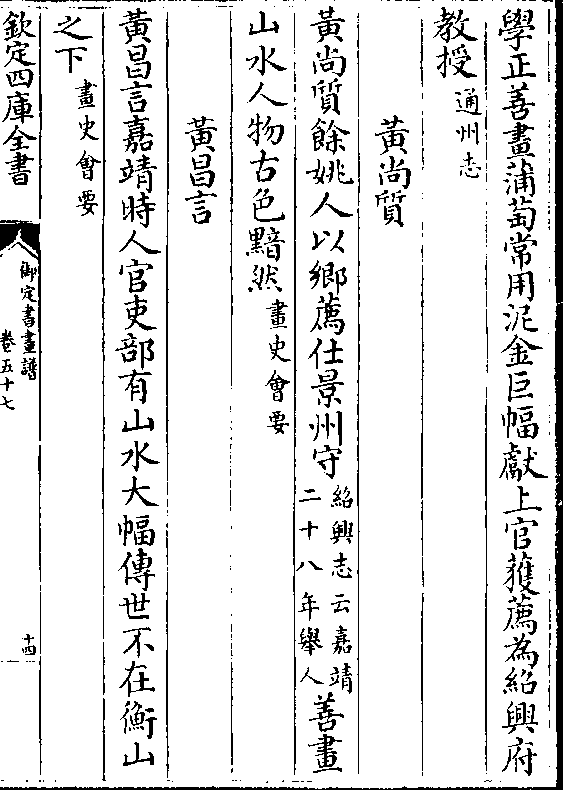 學正善畫蒲萄常用泥金巨幅獻上官獲薦為紹興府
教授通州志
黃尚質
黃尚質餘姚人以鄉薦仕景州守紹興志云嘉靖二十八年舉人善畫
山水人物古色黯然畫史會要
黃昌言
黃昌言嘉靖時人官吏部有山水大幅傳世不在衡山
之下畫史會要
欽定四庫全書
御定書畫譜
卷五十七
十四